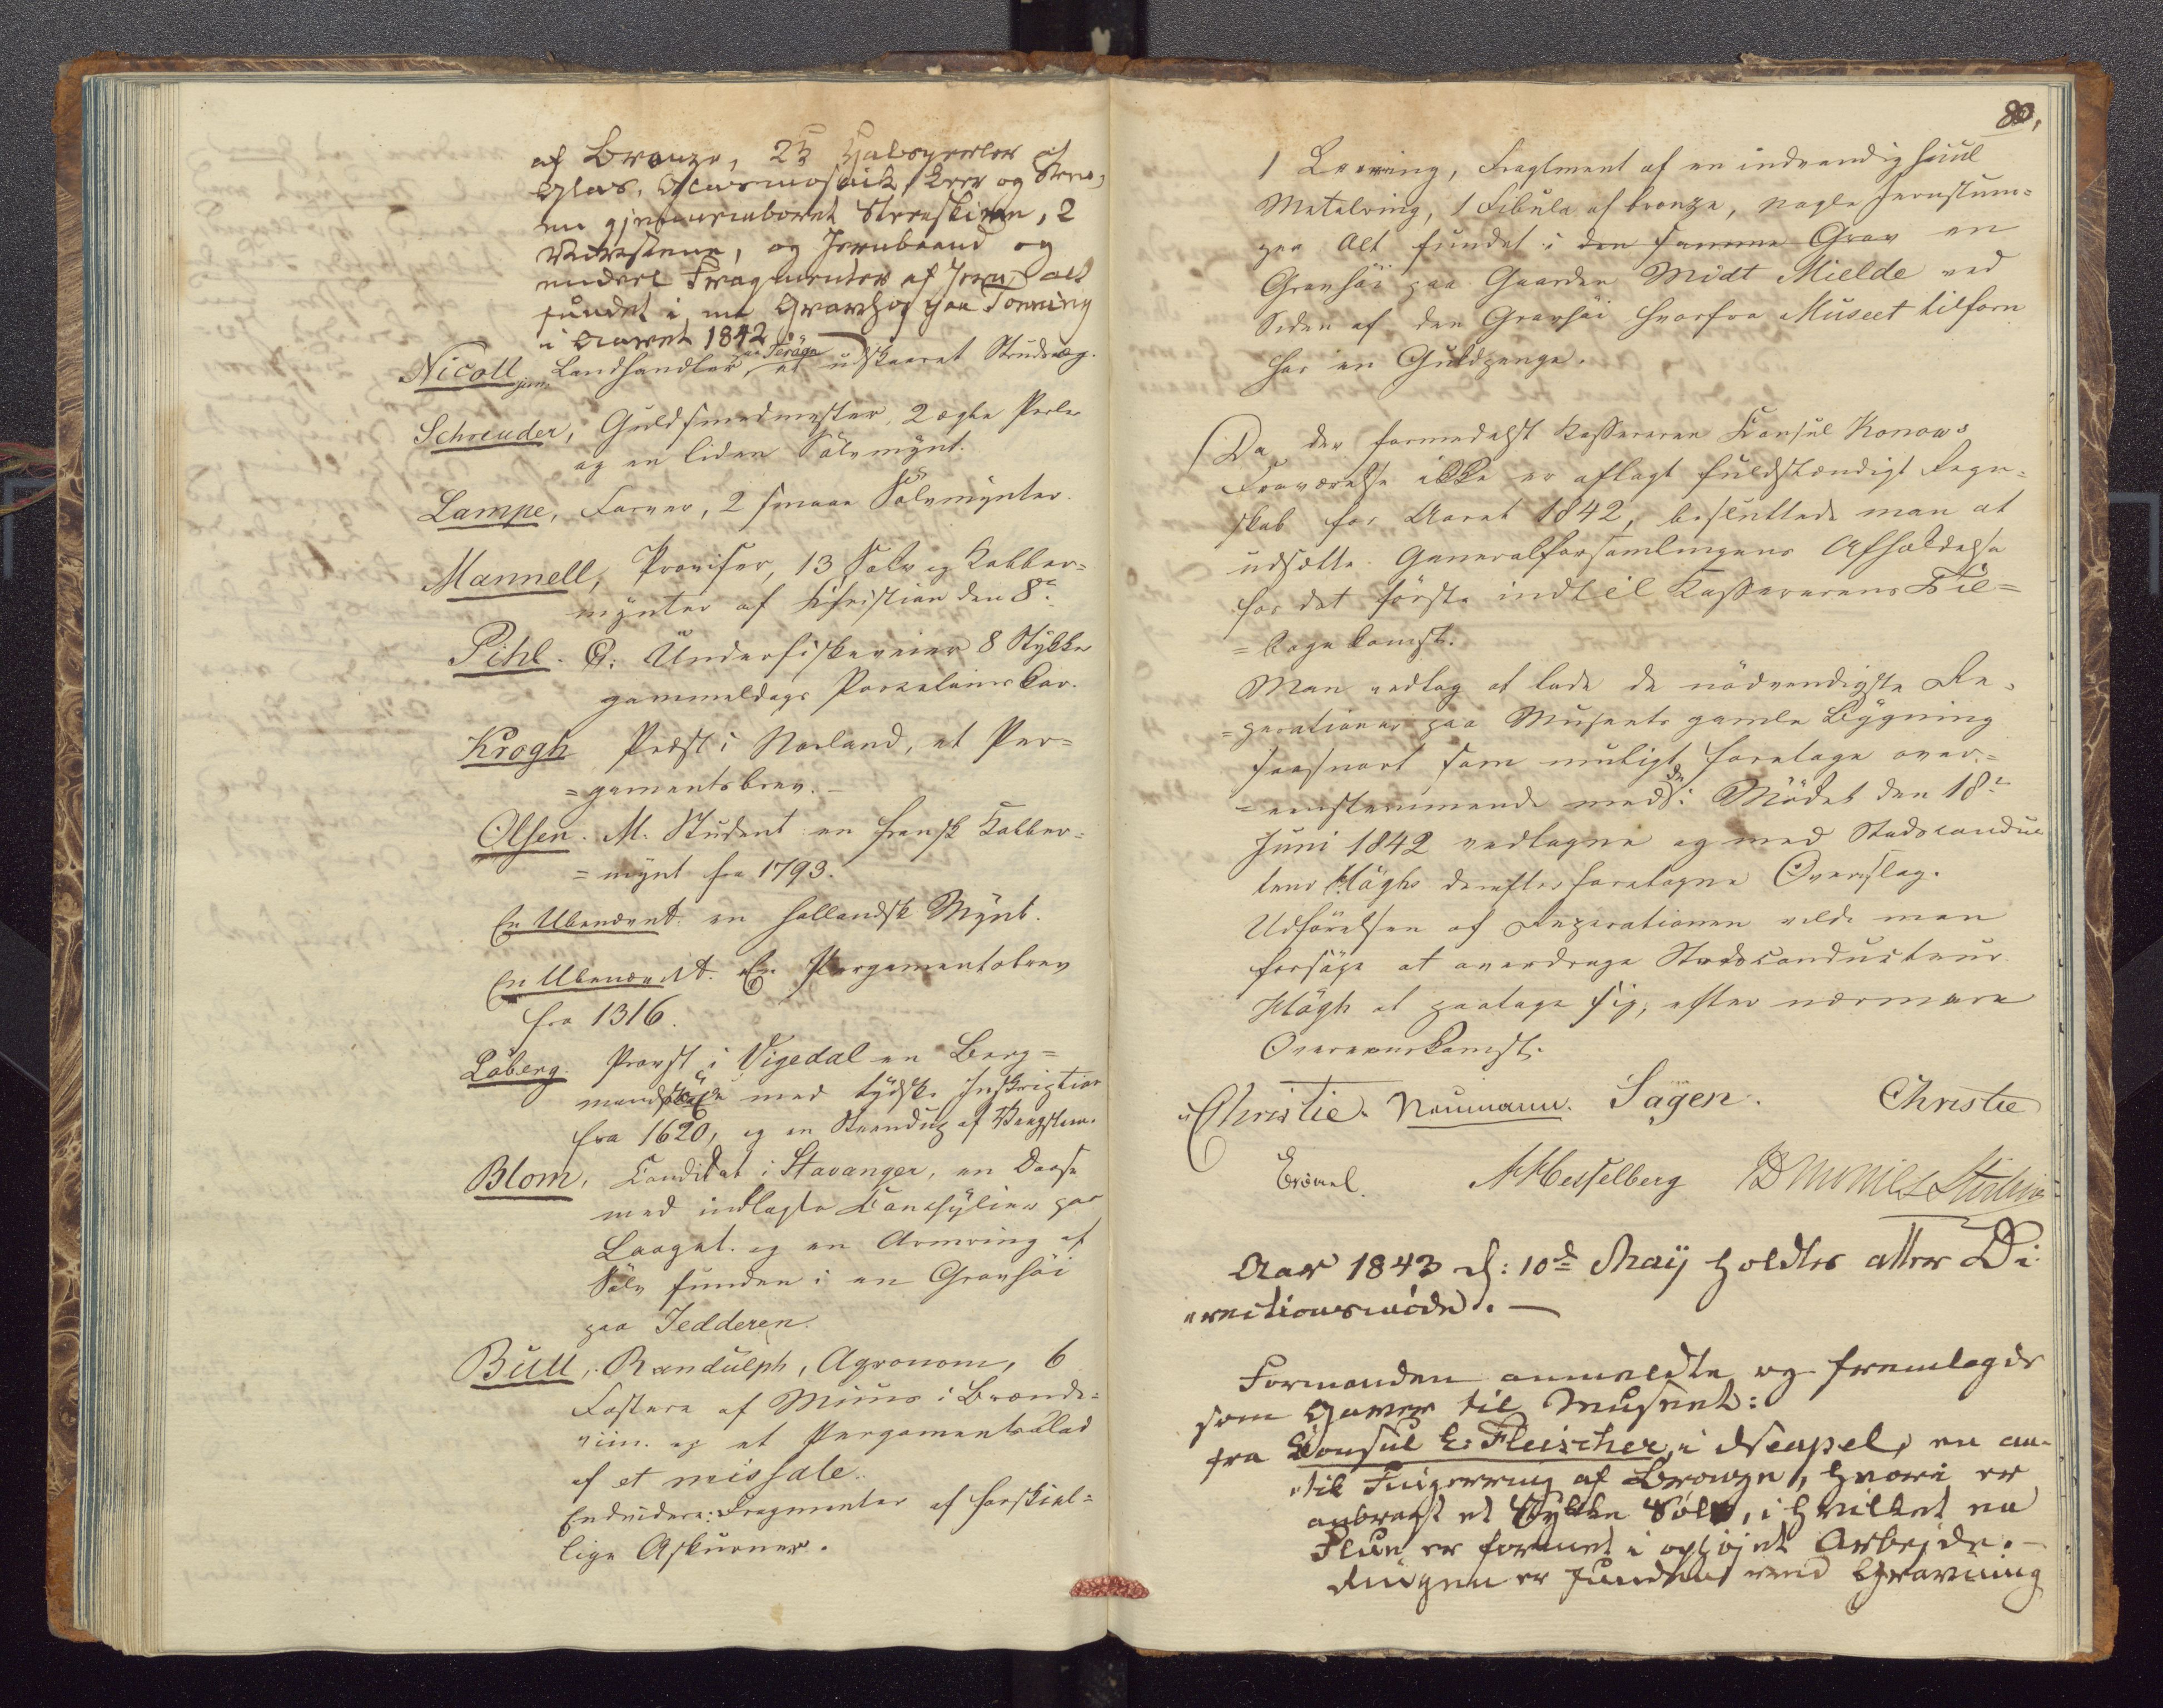 af Bronze, 23 Halsperler af
Glas, Glasmosaik, Leer og Steen,
en gjennemboret Steenskive, 2
Hvæssteene, og Jernbaand og
endeel Fragmenter af Jern, alt
fundet i en Gravhøg paa Torning
i Aaret 1842
Nicoll jun. Landhandler paa Terøgn et udskaaret Strudsæg.
Schreuder, Guldsmedmester, 2 ægte Perler
og en liden Sølvmynt.
Lampe, Farver, 2 smaae Sølvmynter.
Mannell, Provisor, 13 Sølv og Kobber=
mynter af Christian den 8de
Pihl. C. Underfiskeveier 8 Stykker
gammeldags Porcelains Kar.
Krogh Præst i Norland, et Per=
=gamentsbrev. -
Olsen. M. Student en fransk Kobber=
=mynt fra 1793.
En Ubenævnt. en hollandsk Mynt.
En Ubenævnt. Et Pergamentsbrev
fra 1316.
Løberg. Provst i Vigedal en Berg=
mandsøxe med tydsk Inskription
fra 1620, og en Steendup af Vægsteen.
Blom, Candidat i Stavanger, en Daase
med indlagte Conchylier paa
Laaget. og en Armring af
Sølv funden i en Gravhøi
paa Jedderen.
Bull, Randulph, Agronom, 6
Fostere af Muus i Brænde=
viin. og et Pergamentsblad
af et missale.
Endvidere: Fragmenter af forskiel=
lige Askurner.
80,
1 Leerring, Fragtment af en indvendig huul
Metalring, 1 Fibula af bronze, nogle Jernstum=
per Alt fundet i den samme Grav en
Gravhøi paa Gaarden Midt Mielde ved
Siden af den Gravhøi hvorfra Museet tilforn
har en Guldpenge.
Da der formedelst Kassereren Consul Konows
Fraværelse ikke er aflagt fuldstændigt Regn=
skab for Aaret 1842, besluttede man at
udsætte Generalforsamlingens Afholdelse
for det første indtil Kassererens Til=
=bagekomst.
Man vedtog at lade de nødvendigste Re=
=parationer paa Museets gamle Bygning
saasnart som muligt foretage over=
=eensstemmende med de i Mødet den 18de
Juni 1842 vedtagne og med Stadsconduc
teur Høghs derefter foretagne Overslag.
Udførelsen af Reparationen vilde man
forsøge at overdrage Stadsconducteur
Høgh at paatage sig, efter nærmere
Overeenskomst.
Christie. Neumann. Sagen. Christie
Grønel. Messelberg
Aar 1843 d: 10de Maij holdtes atter Di
rectionsmøde. —
Formanden anmeldte og fremlagde
som Gaver til Museet:
fra Consul E: Fleischer i Neapel, en an-
tik Fingerring af Bronze, hvori er
anbragt et Stykke Sølv, i hvilket en
Flue er formet i ophøjet Arbejde. -
Ringen er funden ved Gravning